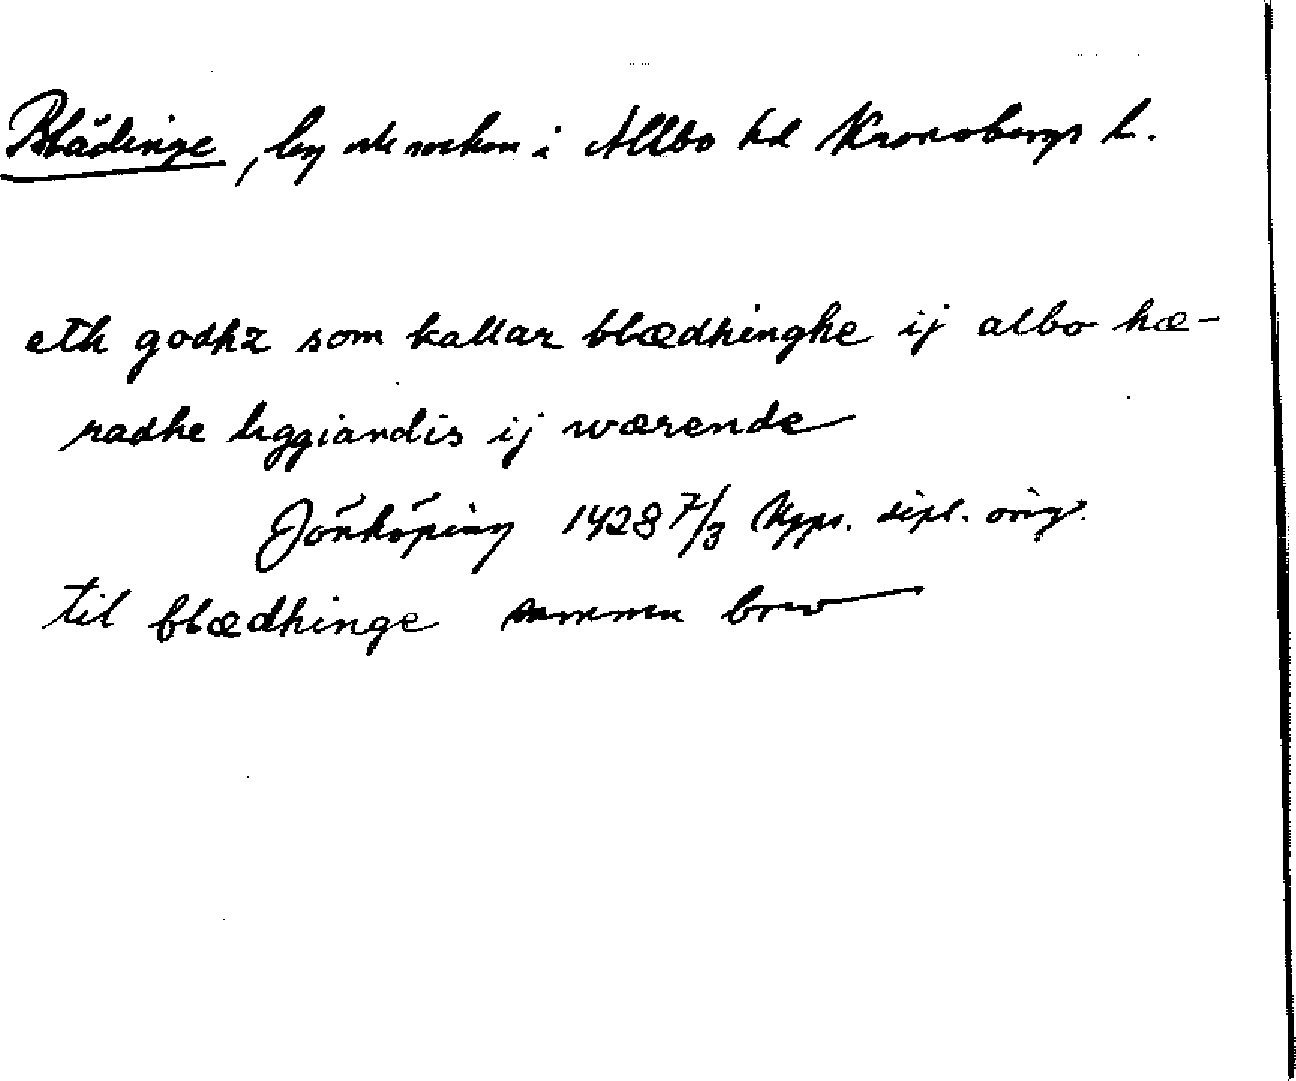 Blädinge, by och socken i Allbo hd Kronobergs l.
eth godhz som kallar blædhinghe ij albo hæ-
radhe liggiandis ij wærende
Jönköping 1428 7/3 Upps. dipl. orig.
til blædhinge samma brev